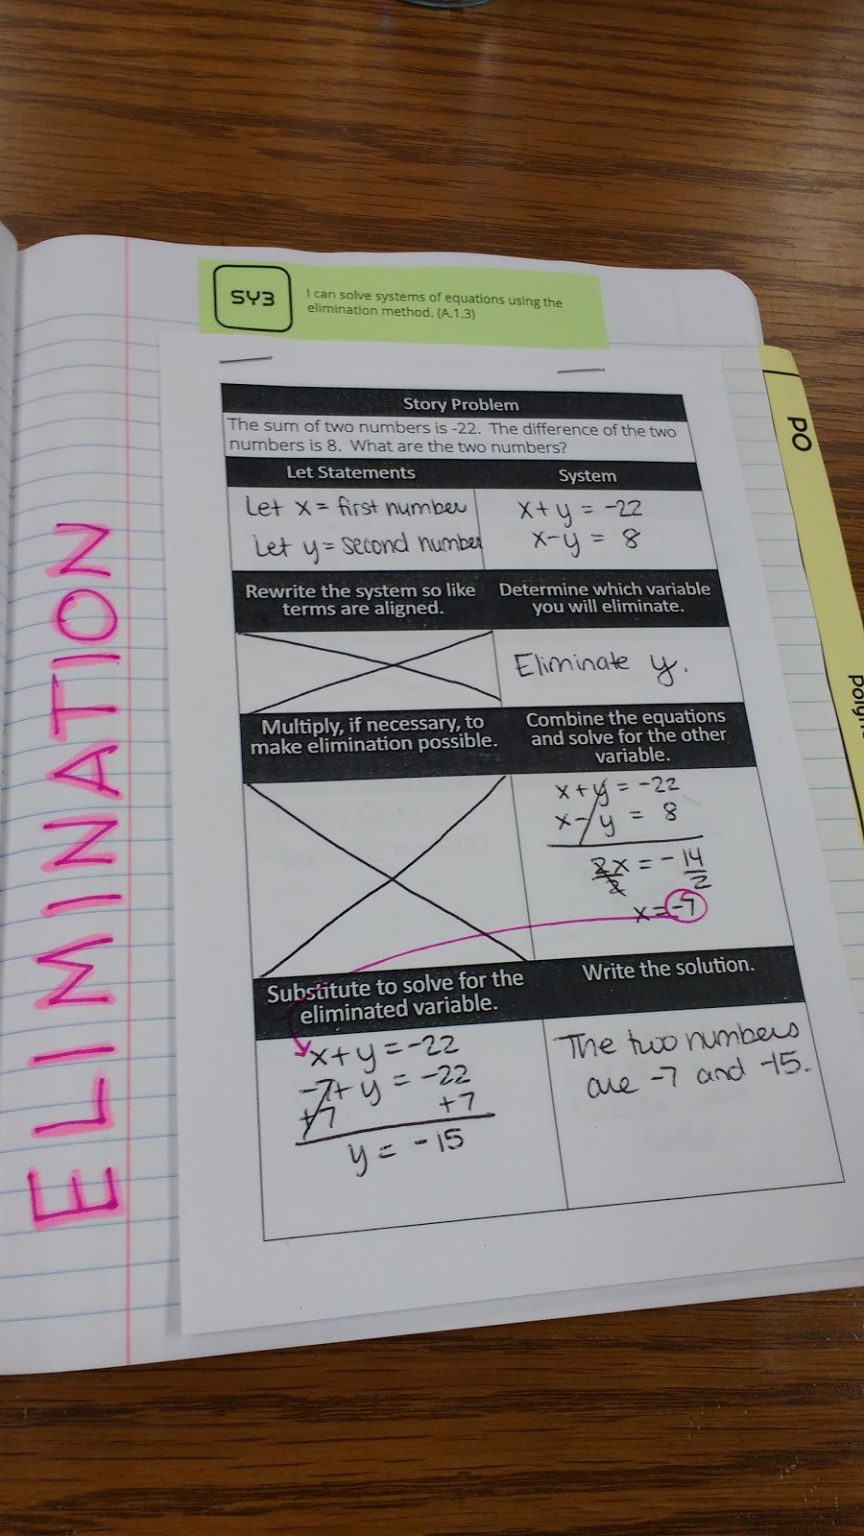 ELIMINATION
SY3
I can solve systems of equations using the
elimination method. (A.1.3)
PO
Story Problem
The sum of two numbers is -22. The difference of the two
numbers is 8. What are the two numbers?
Let Statements
System
Let x = first number
Let y = second number
x+y = -22
x-y = 8
Rewrite the system so like
terms are aligned.
Determine which variable
you will eliminate.
Eliminate y.
Multiply, if necessary, to
make elimination possible.
Combine the equations
and solve for the other
variable.
x+y = -22
x-y = 8
2x = -14
2 2
x=-7
Substitute to solve for the
eliminated variable.
Write the solution.
x+y=-22
-7+y = -22
+7 +7
y = -15
The two numbers
are -7 and -15.